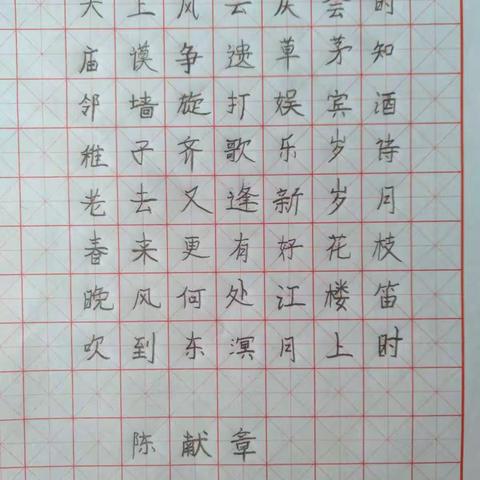 天上风云庆会时
庙谟争遗草茅知
邻墙旋打娱宾酒
稚子齐歌乐岁诗
老去又逢新岁月
春来更有好花枝
晚风何处江楼笛
吹到东溟月上时
陈献章